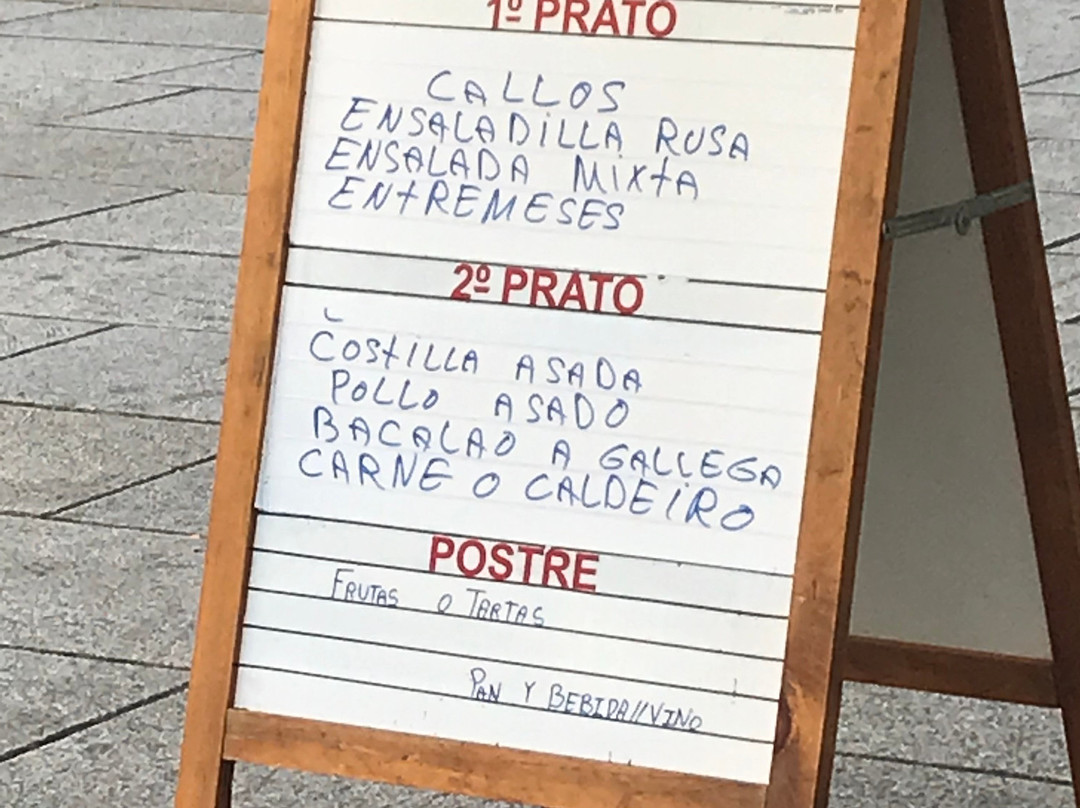 1º PRATO
CALLOS
ENSALADILLA RUSA
ENSALADA MIXTA
ENTREMESES
2º PRATO
COSTILLA ASADA
POLLO ASADO
BACALAO A GALLEGA
CARNE O CALDEIRO
POSTRE
FRUTAS O TARTAS
PAN Y BEBIDA//VINO